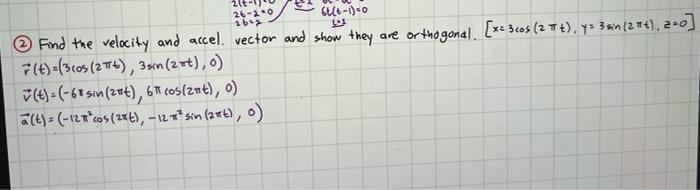 2(t-1)=0
2t-2=0 6t(t-1)=0
2t=2 t=1
② Find the velocity and accel. vector and show they are orthogonal. [x=3cos(2πt), y=3sin(2πt), z=0]
r⃗(t)=(3cos(2πt), 3sin(2πt), 0)
v⃗(t)=(-6π sin(2πt), 6π cos(2πt), 0)
a⃗(t)=(-12π² cos(2πt), -12π² sin(2πt), 0)